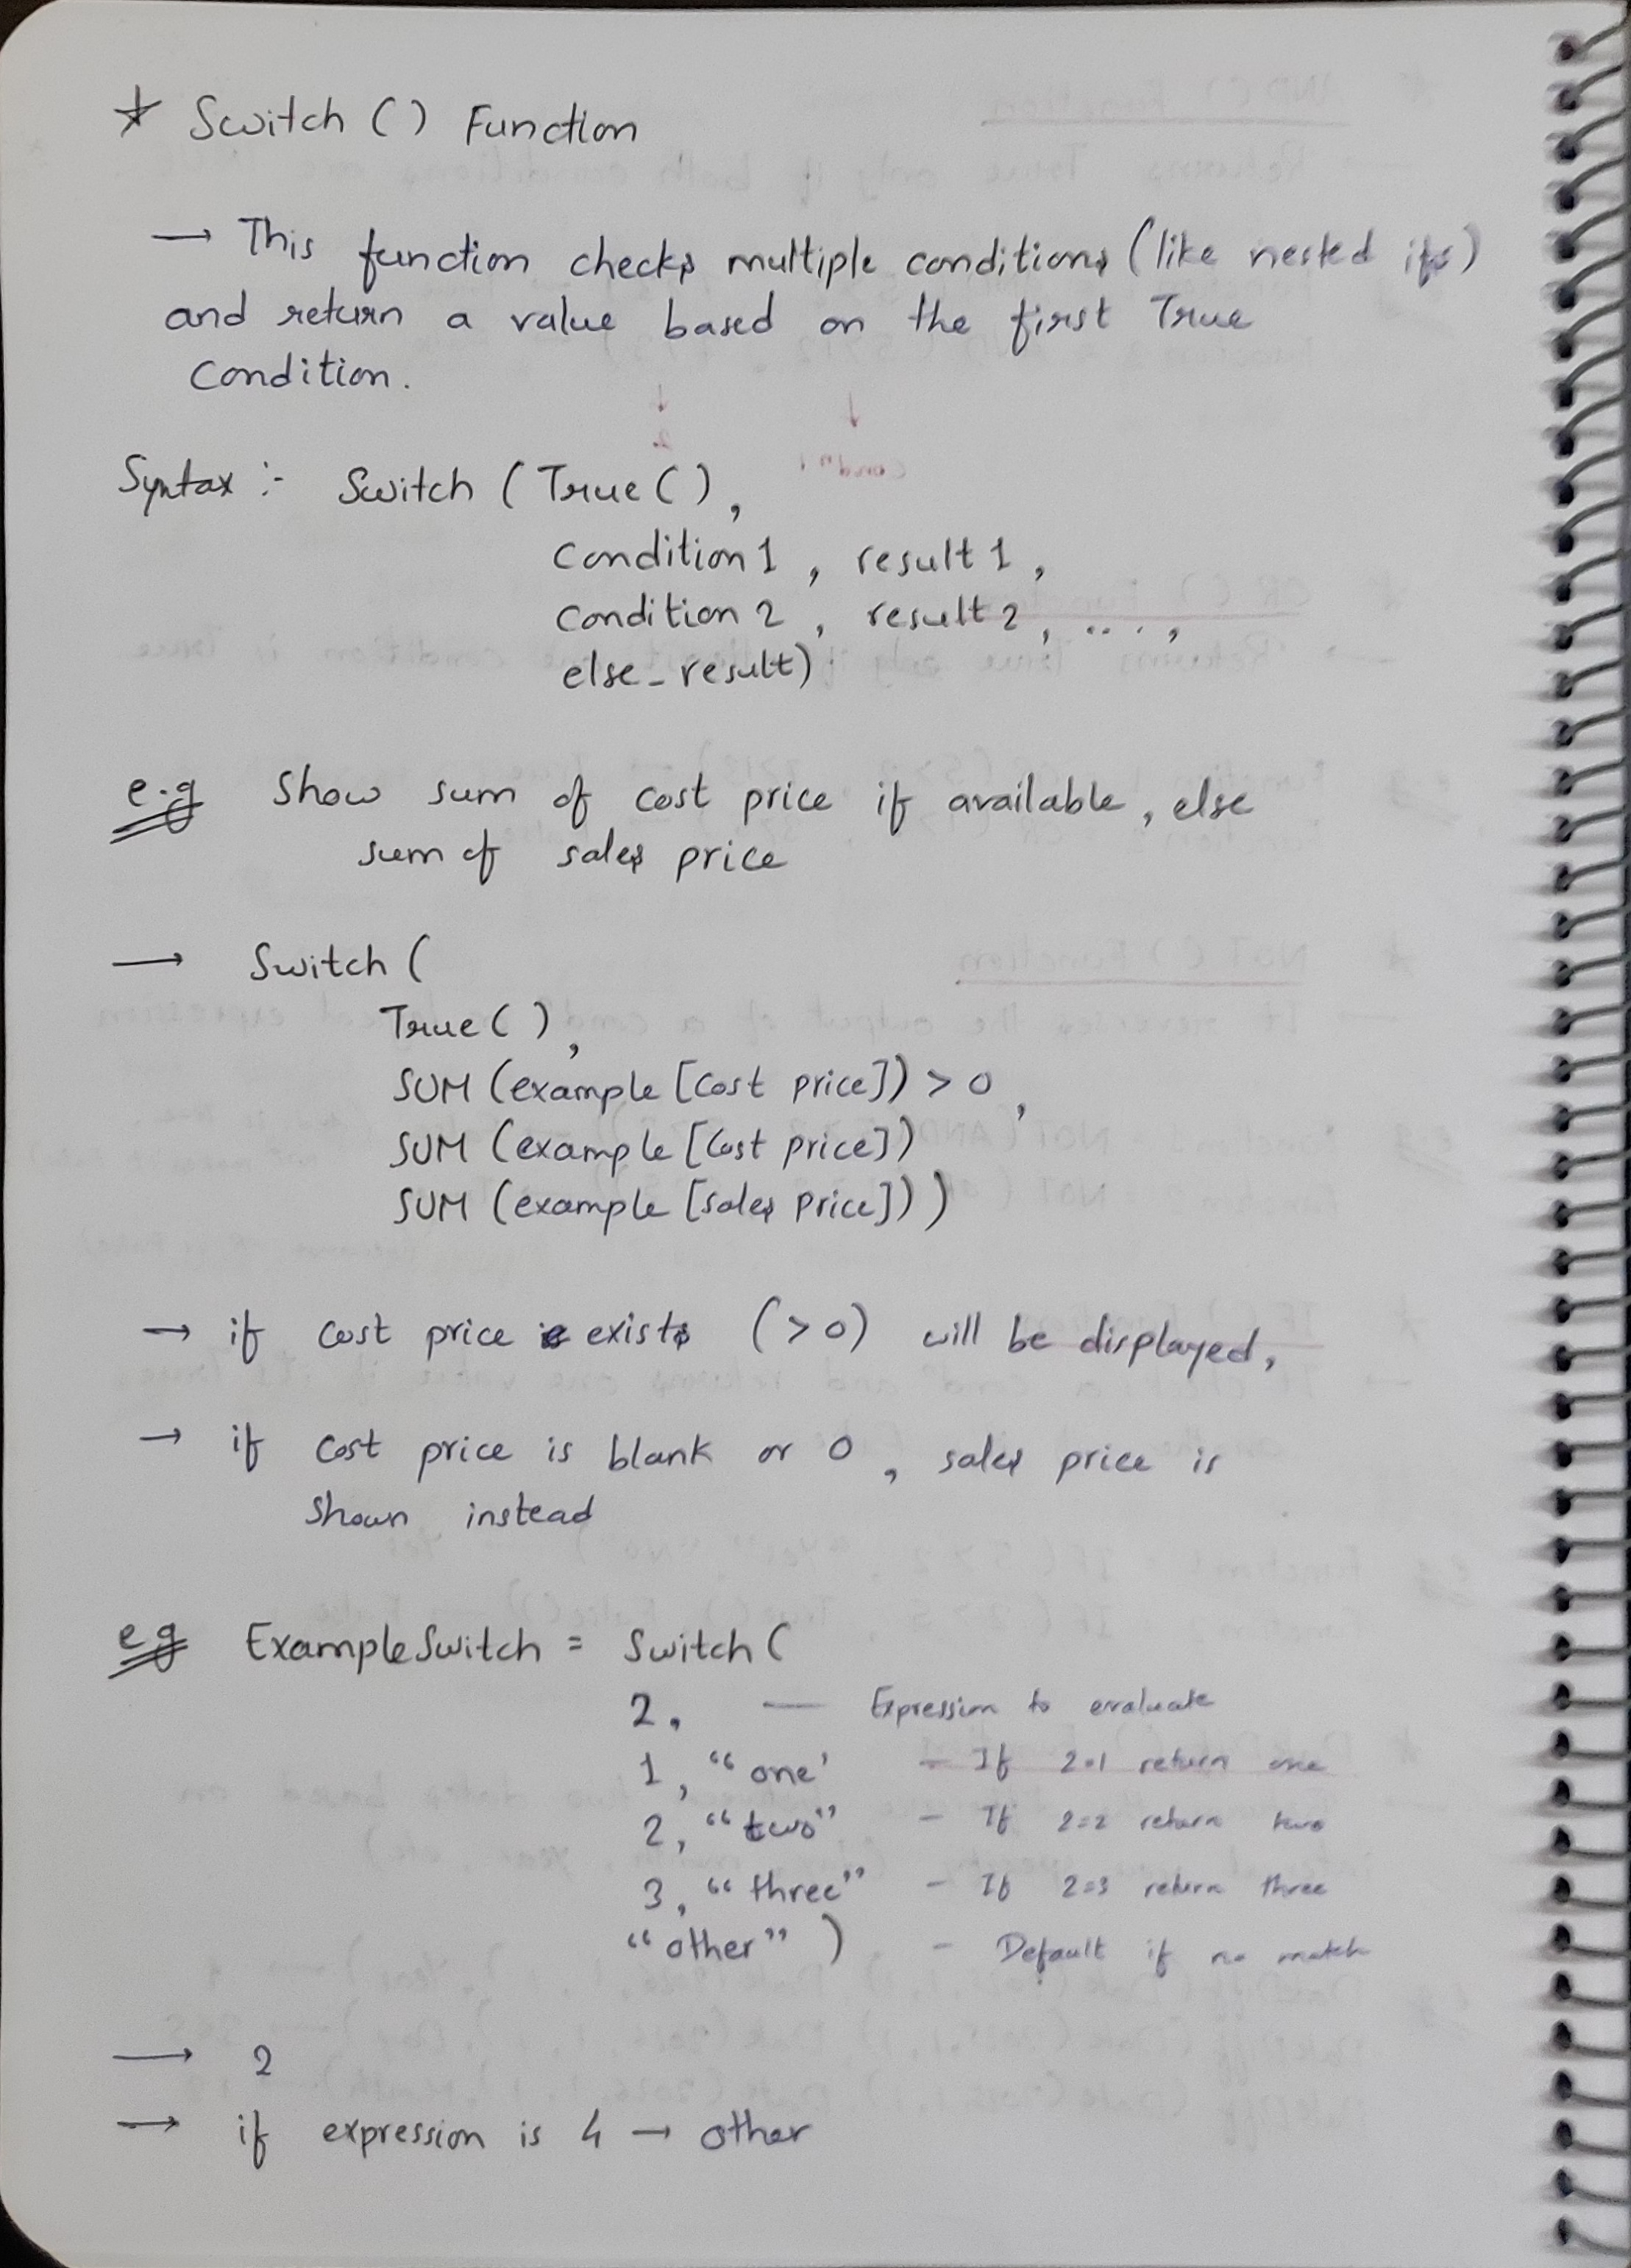 ★ Switch () Function
→ This function checks multiple conditions (like nested ifs)
and return a value based on the first True
Condition.
Syntax :- Switch (True (),
Condition 1, result 1,
Condition 2, result 2, ....,
else_result)
e.g Show sum of cost price if available, else
sum of sales price
→ Switch (
True (),
SUM (example [Cost price]) > 0,
SUM (example [Cost price])
SUM (example [sales price]))
→ if cost price exists (>0) will be displayed,
→ if cost price is blank or 0, sales price is
shown instead
eg ExampleSwitch = Switch (
2, — Expression to evaluate
1, "one' - If 2=1 return one
2, "two" - If 2=2 return two
3, "three" - If 2=3 return three
"other") - Default if no match
→ 2
→ if expression is 4 → other